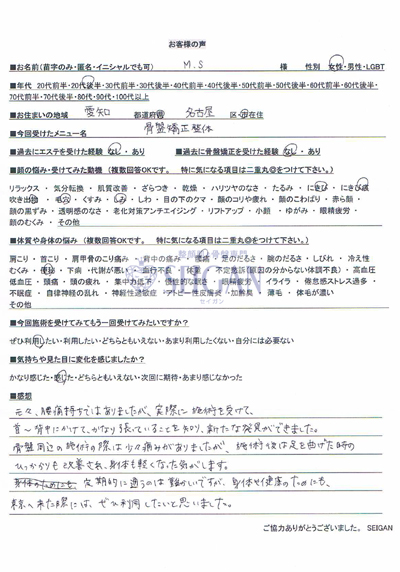 お客様の声
■お名前(苗字のみ・匿名・イニシャルでも可) M.S 様 性別 女性・男性・LGBT
■年代 20代前半・20代後半・30代前半・30代後半・40代前半・40代後半・50代前半・50代後半・60代前半・60代後半・
70代前半・70代後半・80代・90代・100代以上
■お住まいの地域 愛知 都道府県 名古屋 区・市在住
■今回受けたメニュー名 骨盤矯正整体
■過去にエステを受けた経験 なし・あり ■過去に骨盤矯正を受けた経験 なし・あり
■顔の悩み・受けてみた動機 (複数回答OKです。 特に気になる項目は二重丸◎をつけて下さい。)
リラックス ・ 気分転換 ・ 肌質改善 ・ ざらつき ・ 乾燥 ・ ハリツヤのなさ ・ たるみ ・ にきび ・ にきび痕
吹き出物 ・ 毛穴 ・ くすみ ・ しみ ・ しわ ・ 目の下のクマ ・ 顔のコリや疲れ ・ 顔のこわばり ・ 赤ら顔
顔の黒ずみ ・ 透明感のなさ ・ 老化対策アンチエイジング ・ リフトアップ ・ 小顔 ・ ゆがみ ・ 眼精疲労 ・
顔のむくみ ・ その他
■体質や身体の悩み (複数回答OKです。 特に気になる項目は二重丸◎をつけて下さい。)
肩こり ・ 首こり ・ 肩甲骨のこり痛み ・ 背中の痛み ・ 腰痛 ・ 足のだるさ ・ 腕のだるさ ・ しびれ ・ 冷え性
むくみ ・ 便秘 ・ 下痢 ・ 代謝が悪い ・ 血行不良 ・ 体重 ・ 不定愁訴(原因の分からない体調不良) ・ 高血圧
低血圧 ・ 頭痛 ・ 頭の疲れ ・ 集中力低下 ・ 慢性的な眠さ ・ 眼精疲労 ・ イライラ ・ 倦怠感ストレス過多 ・
不眠症 ・ 自律神経の乱れ ・ 神経性過敏症 ・ アトピー性皮膚炎 ・ 加齢臭 ・ 薄毛 ・ 体毛が濃い
その他
SEIGAN
セイガン
■今回施術を受けてみてもう一回受けてみたいですか?
ぜひ利用したい・利用したい・どちらともいえない・あまり利用したくない・自分には必要ない
■気持ちや見た目に変化を感じましたか?
かなり感じた・感じた・どちらともいえない・次回に期待・あまり感じなかった
■感想
元々、腰痛持ちではありましたが、実際に施術を受けて、
首〜背中にかけて、かなり張っていることを知り、新たな発見ができました。
骨盤周辺の施術の際は少々痛みがありましたが、施術後は足を曲げた時の
ひっかかりも改善され、身体も軽くなった気がします。
定期的に通うのは難しいですが、身体や健康のためにも、
東京へ来た際には、ぜひ利用したいと思いました。
ご協力ありがとうございました。 SEIGAN